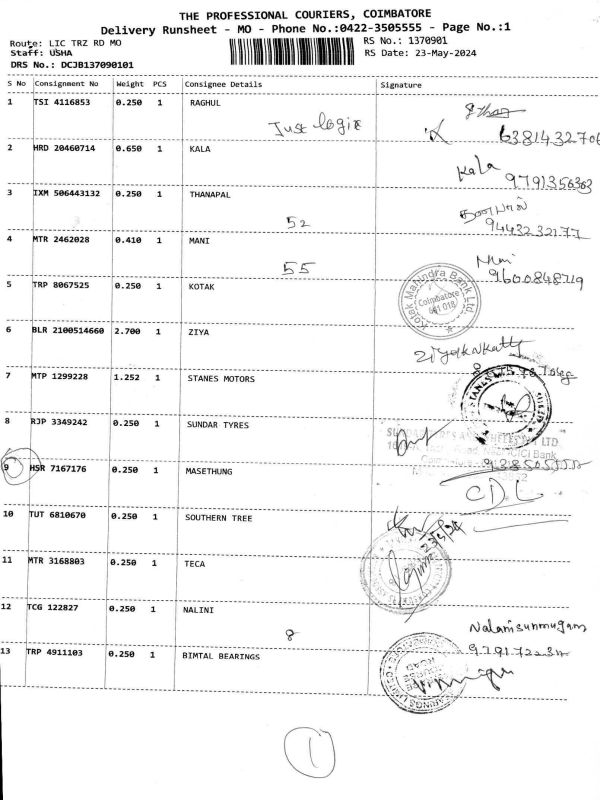 THE PROFESSIONAL COURIERS, COIMBATORE
Delivery Runsheet - MO - Phone No.:0422-3505555 - Page No.:1
Route: LIC TRZ RD MO RS No.: 1370901
Staff: USHA RS Date: 23-May-2024
DRS No.: DCJB137090101
S No Consignment No Weight PCS Consignee Details Signature
1 TSI 4116853 0.250 1 RAGHUL
Just logix 6381432706
2 HRD 20460714 0.650 1 KALA
Kala 9791356363
3 IXM 506443132 0.250 1 THANAPAL
52 9443232177
4 MTR 2462028 0.410 1 MANI
55 Mani 9600848719
5 TRP 8067525 0.250 1 KOTAK
Kotak Mahindra Bank Ltd. Coimbatore 641 018
6 BLR 2100514660 2.700 1 ZIYA
7 MTP 1299228 1.252 1 STANES MOTORS
8 RJP 3349242 0.250 1 SUNDAR TYRES
ICICI Bank
9 HSR 7167176 0.250 1 MASETHUNG
CDL
10 TUT 6810670 0.250 1 SOUTHERN TREE
11 MTR 3168803 0.250 1 TECA
12 TCG 122827 0.250 1 NALINI
8 Nalanisunmugam
13 TRP 4911103 0.250 1 BIMTAL BEARINGS
1